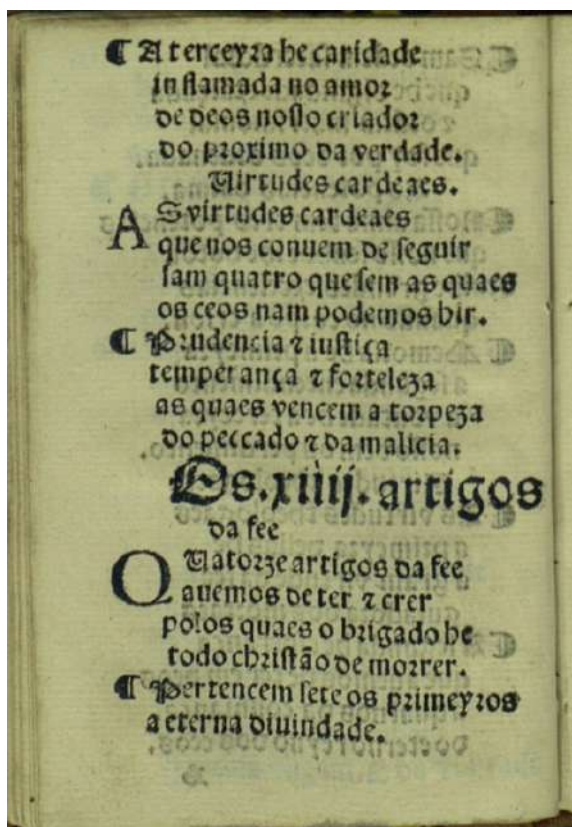 ¶ A terceyra he caridade
inflamada no amor
de deos nosso criador
do proximo da verdade.
Uirtudes cardeaes.
AS virtudes cardeaes
que nos conuem de seguir
sam quatro que sem as quaes
os ceos nam podemos hir.
¶ Prudencia ⁊ iustiça
temperança ⁊ forteleza
as quaes vencem a torpeza
do peccado ⁊ da malicia.
Os .xiiij. artigos
da fee
QUatorze artigos da fee
auemos de ter ⁊ crer
polos quaes obrigado he
todo christão de morrer.
¶ Pertencem sete os primeyros
a eterna diuindade.